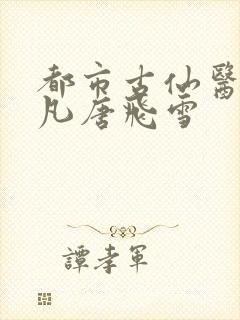 都市古仙醫
凡唐飛雪
譚孝軍